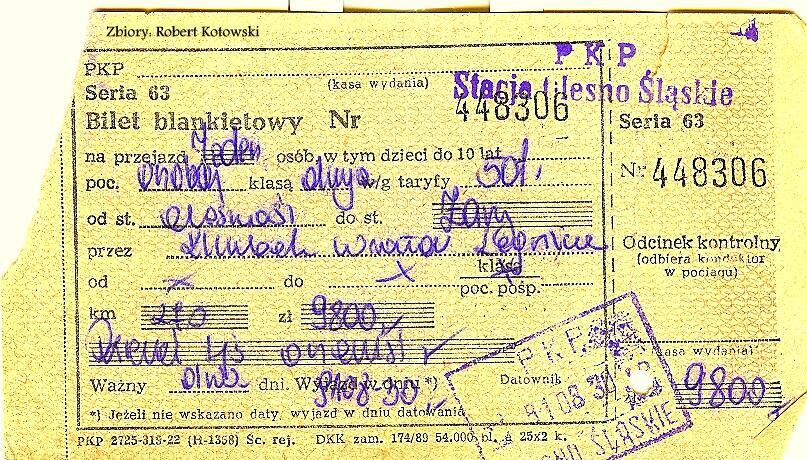 Zbiory. Robert Kotowski
PKP
PKP
(kasa wydania)
Stacja Olesno Śląskie
Seria 63
448306
Bilet blankietowy Nr
Seria 63
na przejazd Jeden osób, w tym dzieci do 10 lat
Nr 448306
poc. klasą w/g taryfy 50%
od st. do st. Żary
przez Wrocław Legnica
Odcinek kontrolny
(odbiera konduktor
w pociągu)
od do klasa
poc. pośp.
km 270 zł 9800,-
PKP
kasa wydania)
Ważny dni. Wyjazd w dniu *) 91.08.30
Datownik
91 08 30
9800
*) Jeżeli nie wskazano daty, wyjazd w dniu datowania
OLESNO ŚLĄSKIE
PKP 2725-313-22 (H-1358) Sc. rej. DKK zam. 174/89 54.000 bl. á 25x2 k.